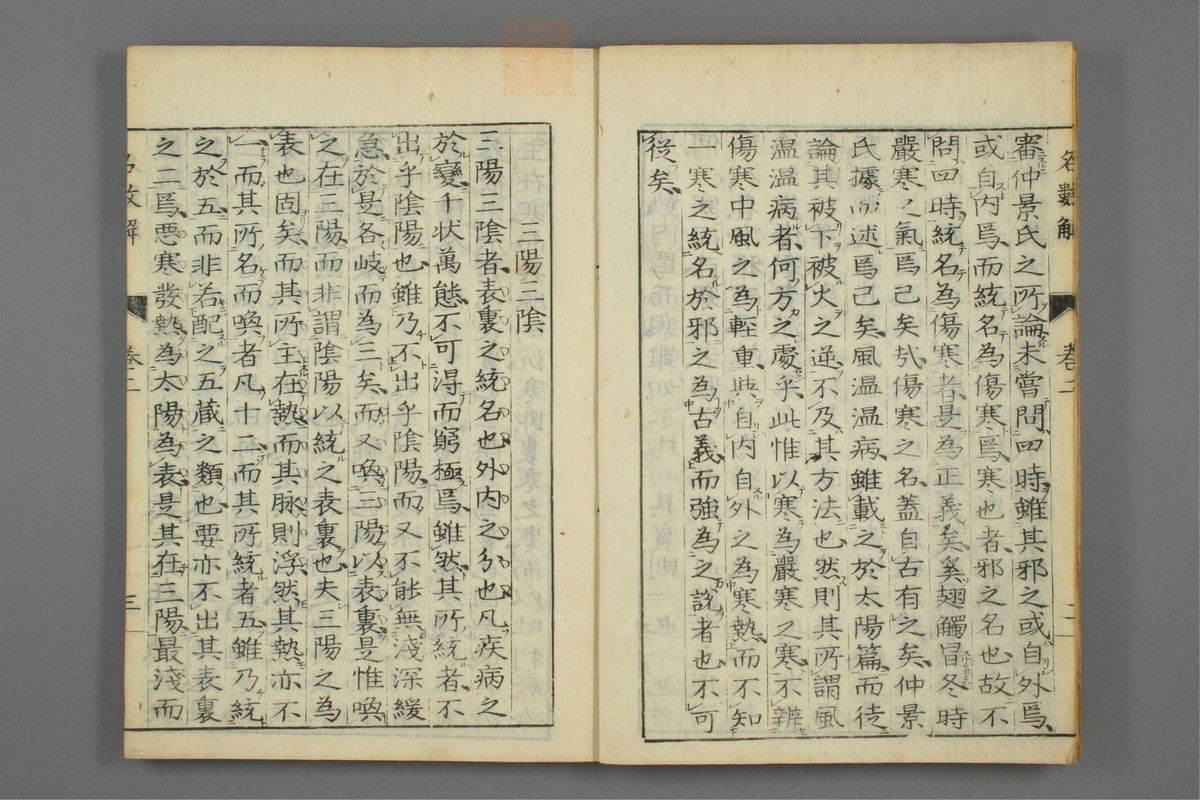 名數解
卷二
二
審仲景氏之所論未嘗問四時雖其邪之或自外焉
或自内焉而統名為傷寒焉寒也者邪之名也故不
問四時統名為傷寒者是為正義矣奚翅觸冒冬時
嚴寒之氣焉已矣哉傷寒之名蓋自古有之矣仲景
氏據而述焉已矣風温温病雖載之於太陽篇而徒
論其被下被火之逆不及其方法也然則其所謂風
温温病者何方之處乎此惟以寒為嚴寒之寒不辨
傷寒中風之為輕重與自内自外之為寒熱而不知
一寒之統名於邪之為古義而強為之說者也不可
從矣
三陽三陰
三陽三陰者表裏之統名也外内之分也凡疾病之
於變千状萬態不可得而窮極焉雖然其所統者不
出乎陰陽也雖乃不出乎陰陽而又不能無淺深緩
急於是各岐而為三矣而又喚三陽以表裏是惟喚
之在三陽而非謂陰陽以統之表裏也夫三陽之為
表也固矣而其所主在熱而其脉則浮然其熱亦不
一而其所名而喚者凡十二而其所統者五雖乃統
之於五而非若配之五蔵之類也要亦不出其表裏
之二焉惡寒發熱為太陽為表是其在三陽最淺而
名數解
卷二
三